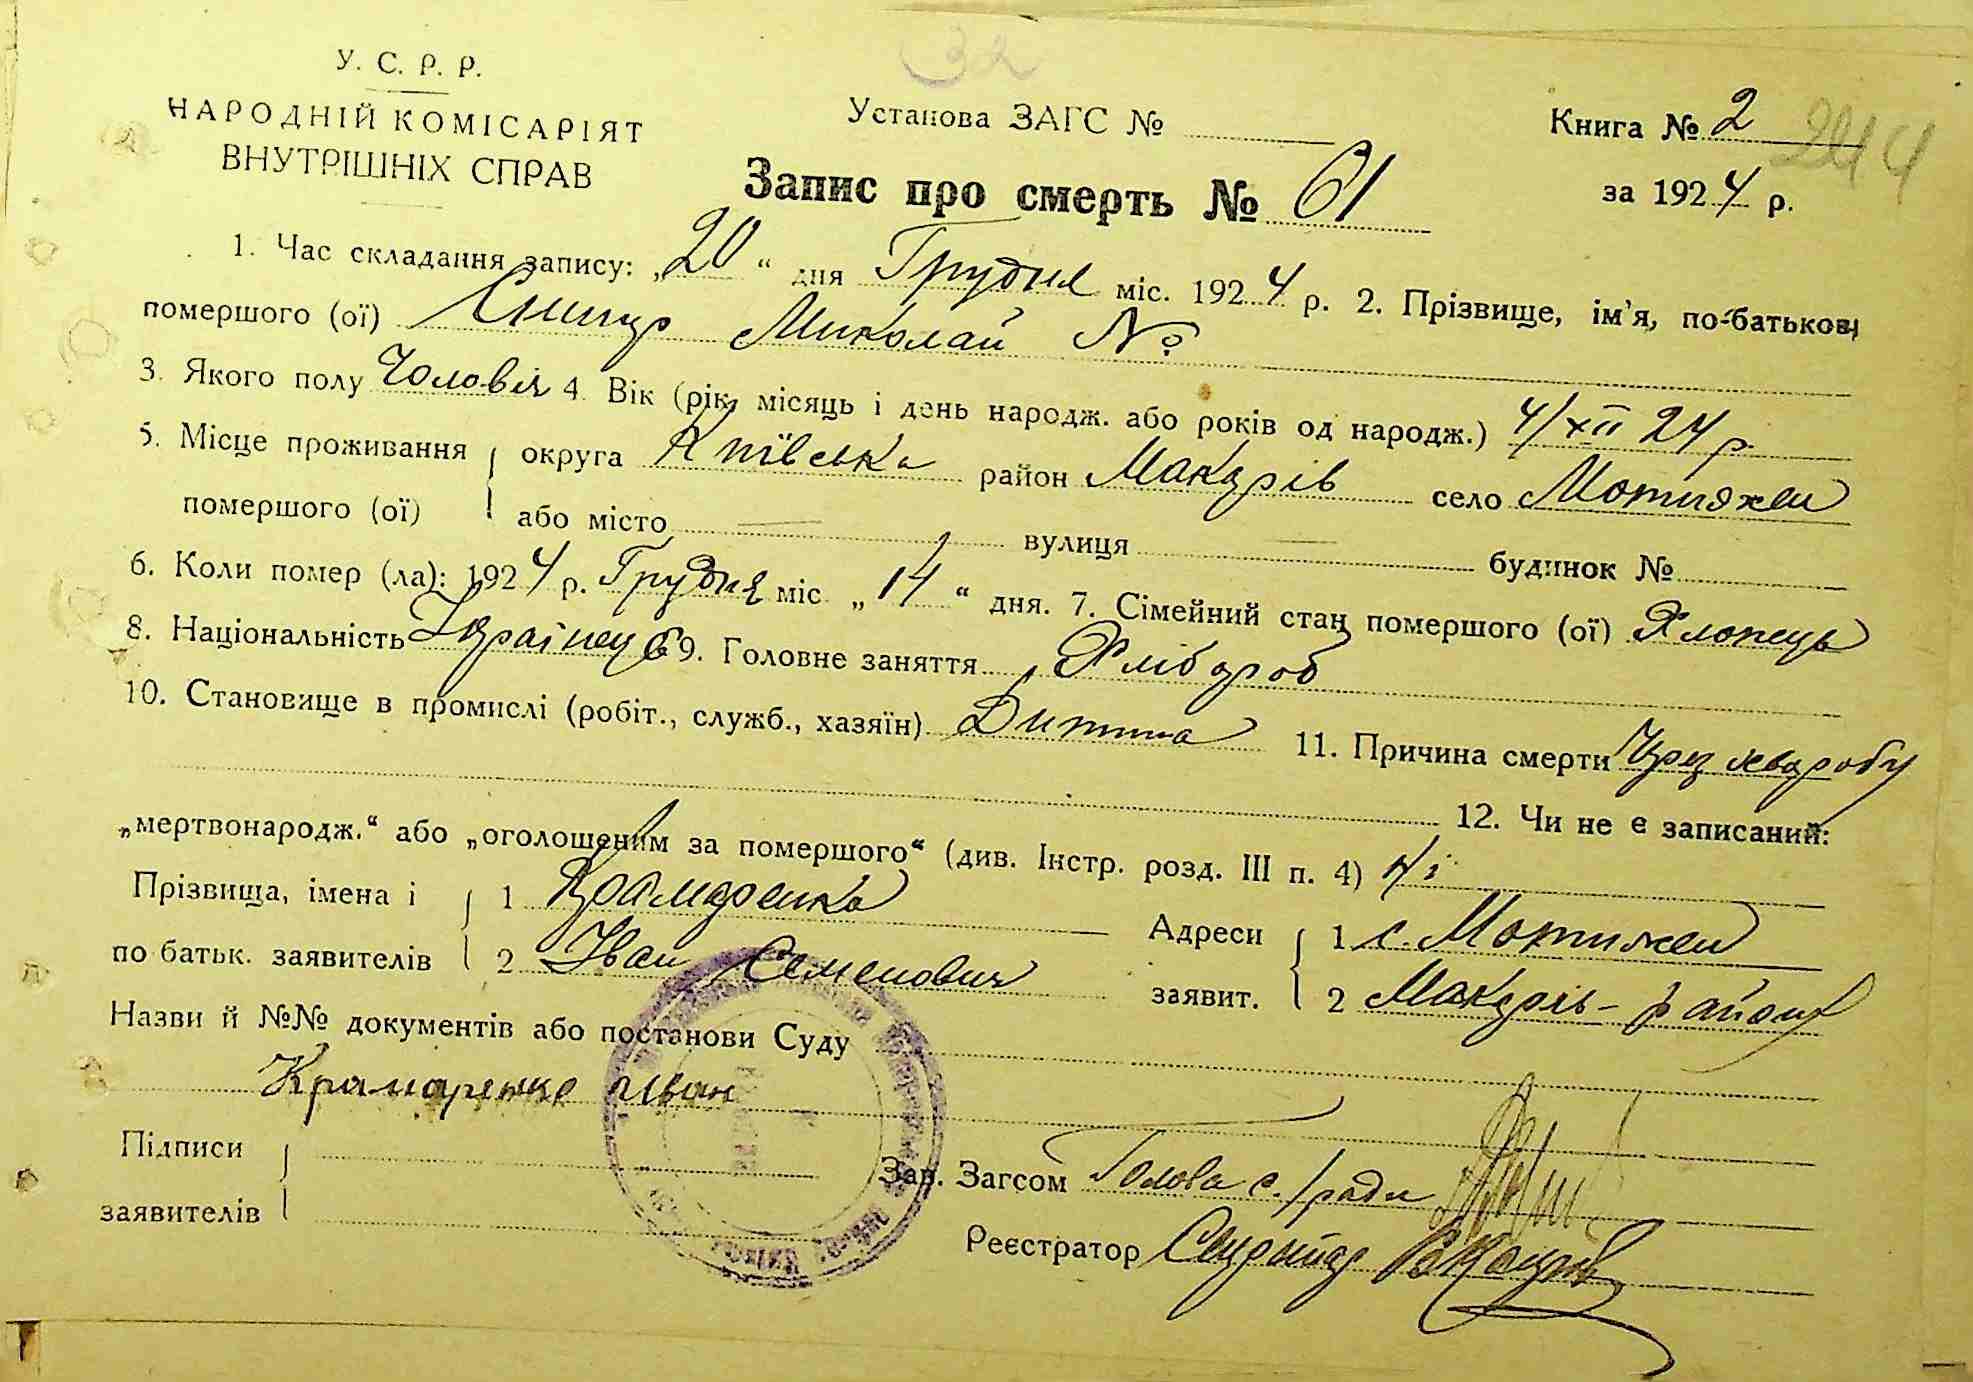 32
У. С. Р. Р.
НАРОДНІЙ КОМІСАРІЯТ
ВНУТРІШНІХ СПРАВ
Установа ЗАГС №
Книга № 2 244
Запис про смерть № 61
за 1924 р.
1. Час складання запису: „20“ дня Грудня міс. 1924 р. 2. Прізвище, ім'я, по-батькові
помершого (ої) Миколай №
3. Якого полу Чоловіч 4. Вік (рік, місяць і день народж. або років од народж.) 4/XII 24 р.
5. Місце проживання округа Київська район Макарів село Мотижен
помершого (ої) або місто вулиця будинок №
6. Коли помер (ла): 1924 р. Грудня міс. „14“ дня. 7. Сімейний стан помершого (ої) Хлопець
8. Національність Україньц 9. Головне заняття Хлібороб
10. Становище в промислі (робіт., служб., хазяїн) Дитина 11. Причина смерти Чрез хворобу
12. Чи не є записаний:
„мертвонародж.“ або „оголошеним за помершого“ (див. Інстр. розд. III п. 4) Ні
Прізвища, імена і 1 Крамаренко Адреси 1 с. Мотижен
по батьк. заявителів 2 Іван Семенович заявит. 2 Макарів- району
Назви й №№ документів або постанови Суду
Крамаренко Иван
Підписи
заявителів
Зав. Загсом Голова с./ради
Реєстратор